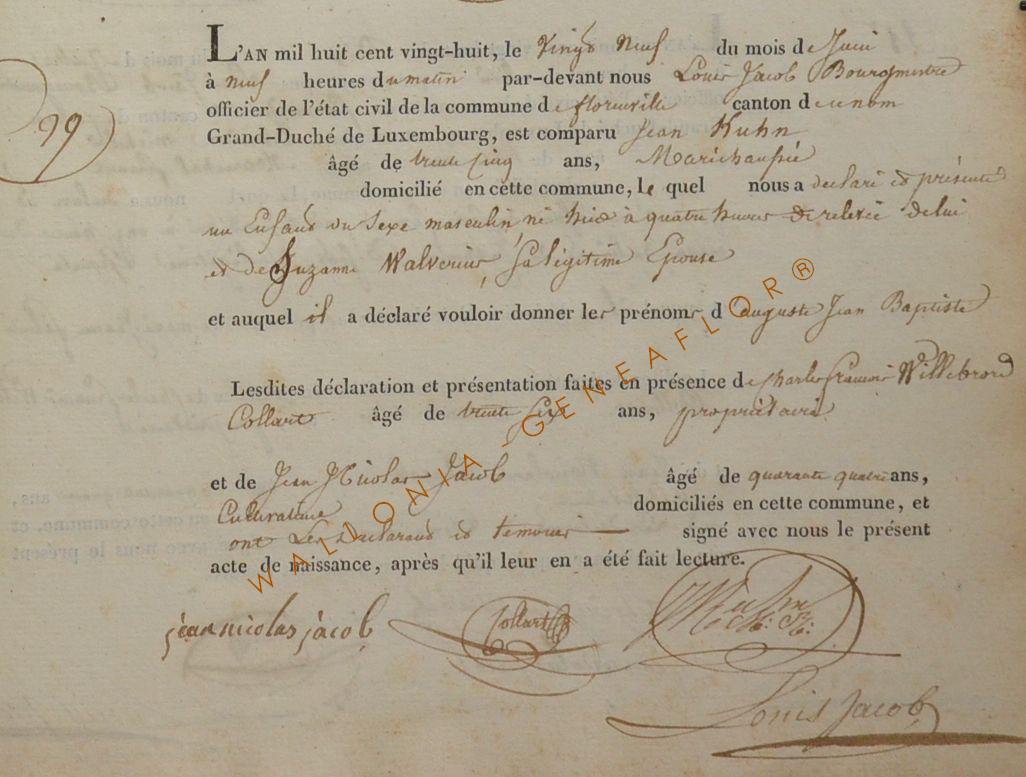 L'AN mil huit cent vingt-huit, le Vingt Neuf du mois de Juin
à neuf heures du matin par-devant nous Louis Jacob Bourgmestre
officier de l'état civil de la commune de florenville canton de ce nom
99
Grand-Duché de Luxembourg, est comparu Jean Kuhn
âgé de trente cinq ans, Marichaussée
domicilié en cette commune, le quel nous a declaré et présenté
un Enfant du Sexe masculin, né hier à quatre heures de relevée de lui
et de Suzanne Walverius, sa légitime Epouse
et auquel il a déclaré vouloir donner les prénoms d auguste Jean Baptiste
Lesdites déclaration et présentation faites en présence de charles francois Willebrord
Collart âgé de trente six ans, propriétaire
et de Jean Nicolas Jacob âgé de quarante quatre ans,
Cultivateur domiciliés en cette commune, et
ont Les Declarant et temoins signé avec nous le présent
acte de naissance, après qu'il leur en a été fait lecture.
jean nicolas jacob Collart Kuhn
Louis Jacob
WALLONIA - GENEAFLOR®